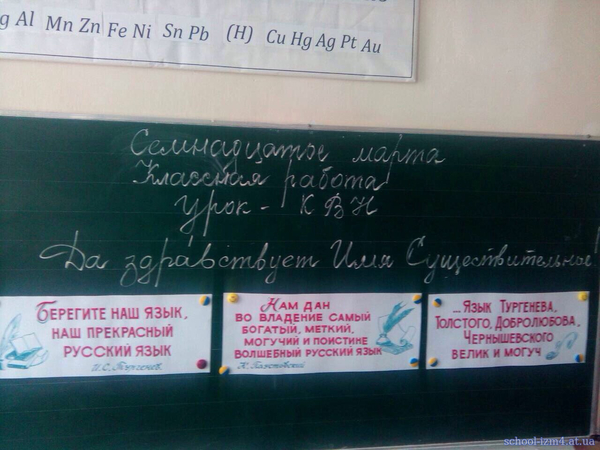 g Al Mn Zn Fe Ni Sn Pb (H) Cu Hg Ag Pt Au
Семнадцатое марта
Классная работа
Урок - КВН
Да здравствует Имя Существительное!
БЕРЕГИТЕ НАШ ЯЗЫК,
НАШ ПРЕКРАСНЫЙ
РУССКИЙ ЯЗЫК
И.С.Тургенев.
НАМ ДАН
ВО ВЛАДЕНИЕ САМЫЙ
БОГАТЫЙ, МЕТКИЙ,
МОГУЧИЙ И ПОИСТИНЕ
ВОЛШЕБНЫЙ РУССКИЙ ЯЗЫК
К. Паустовский
... ЯЗЫК ТУРГЕНЕВА,
ТОЛСТОГО, ДОБРОЛЮБОВА,
ЧЕРНЫШЕВСКОГО
ВЕЛИК И МОГУЧ
school-izm4.at.ua